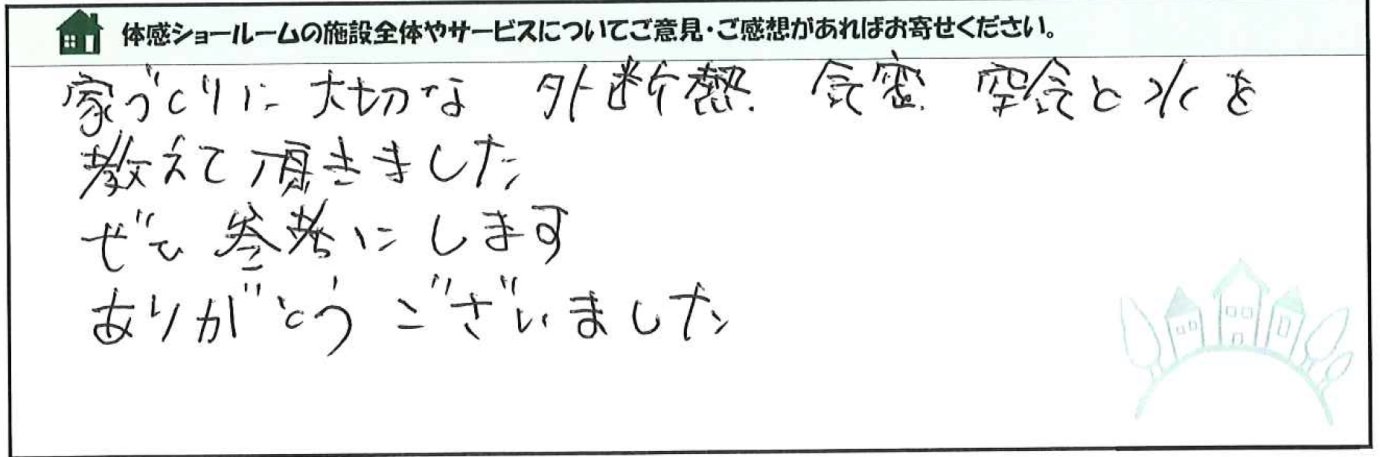 体感ショールームの施設全体やサービスについてご意見・ご感想があればお寄せください。
家づくりに大切な 外断熱. 気密. 空気と水を
教えて頂きました
ぜひ 参考にします
ありがとう ございました